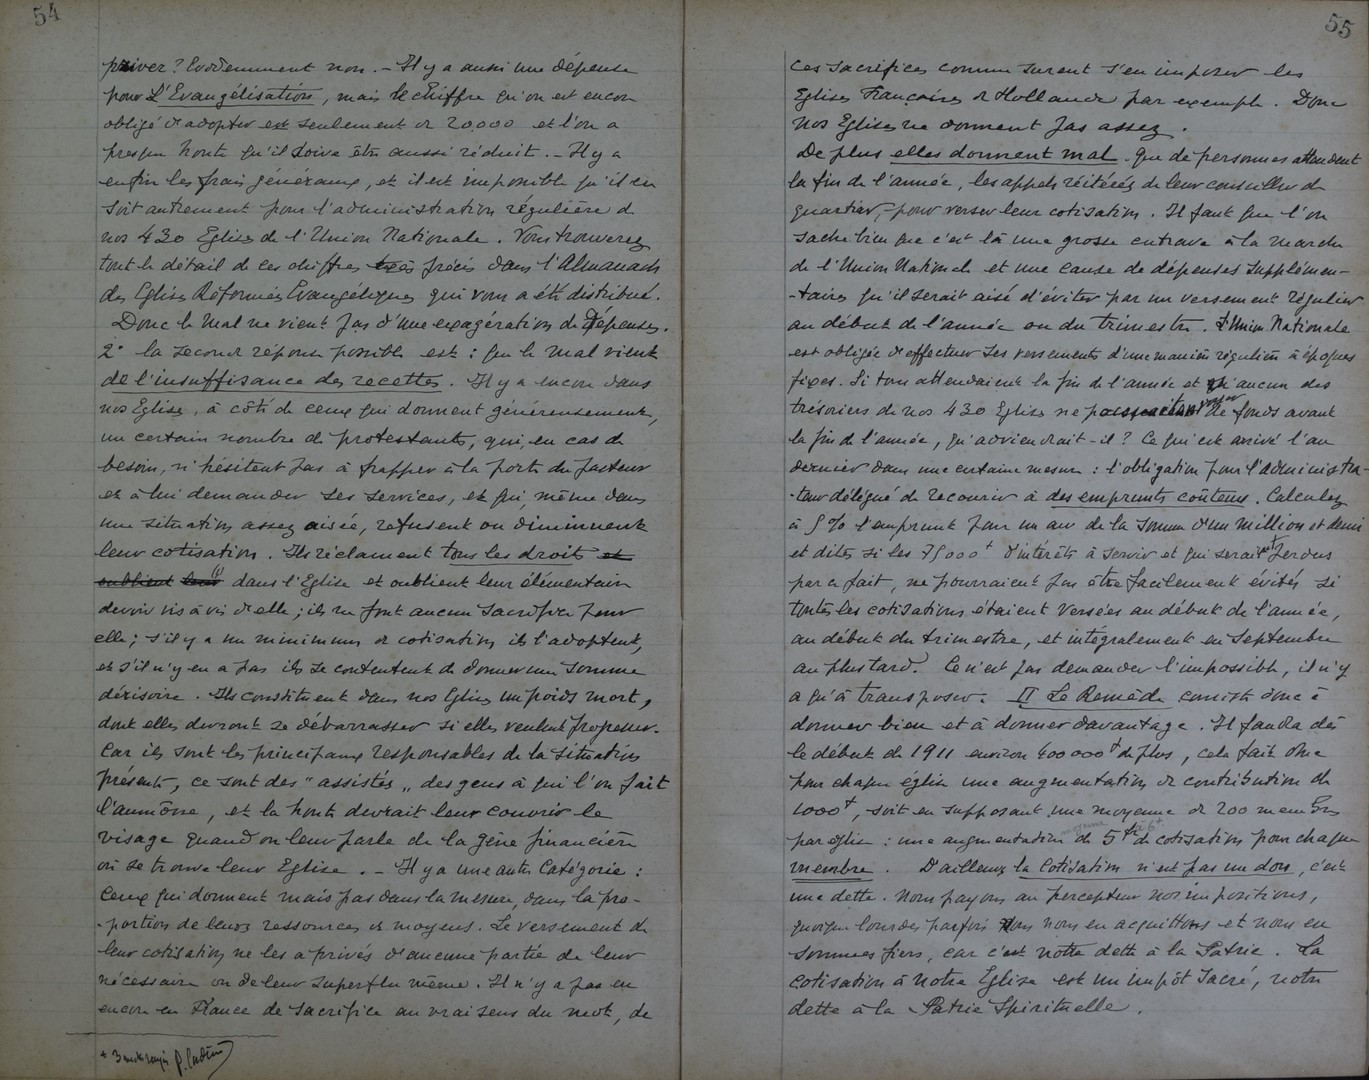 54
priver? Evidemment non. - Il y a aussi une dépense
pour L'Evangélisation, mais le chiffre qu'on est encore
obligé d'adopter est seulement de 20,000 et l'on a
presque honte qu'il doive être aussi réduit. - Il y a
enfin les frais généraux, et il est impossible qu'il en
soit autrement pour l'administration régulière de
nos 430 Eglises de l'Union Nationale. Vous trouverez
tout le détail de ces chiffres très précis dans l'Almanach
des Eglises Réformées Evangéliques qui vous a été distribué.
Donc le mal ne vient pas d'une exagération de Dépenses.
2° la seconde réponse possible est : que le mal vient
de l'insuffisance des recettes. Il y a encore dans
nos Eglises, à côté de ceux qui donnent généreusement,
un certain nombre de protestants, qui, en cas de
besoin, n'hésitent pas à frapper à la porte du pasteur
et à lui demander ses services, et qui, même dans
une situation assez aisée, refusent ou diminuent
leur cotisation. Ils réclament tous les droits et
oublient leur dans l'Eglise et oublient leur élémentaire
devoir vis à vis d'elle ; ils ne font aucun sacrifice pour
elle ; s'il y a un minimum de cotisation ils l'adoptent,
et s'il n'y en a pas ils se contentent de donner une somme
dérisoire. Ils constituent dans nos Eglises un poids mort,
dont elles devront se débarrasser si elles veulent progresser.
Car ils sont les principaux responsables de la situation
présente, ce sont des "assistés" des gens à qui l'on fait
l'aumône, et la honte devrait leur couvrir le
visage quand on leur parle de la gêne financière
où se trouve leur Eglise. - Il y a une autre Catégorie :
Ceux qui donnent mais pas dans la mesure, dans la pro-
-portion de leurs ressources et moyens. Le versement de
leur cotisation ne les a privés d'aucune partie de leur
nécessaire ou de leur superflu même. Il n'y a pas eu
encore en France de sacrifice au vrai sens du mot, de
55
ces sacrifices comme surent s'en imposer les
Eglises Françaises de Hollande par exemple. Donc
nos Eglises ne donnent pas assez.
De plus elles donnent mal. Que de personnes attendent
la fin de l'année, les appels réitérés de leur conseiller de
quartier, pour verser leur cotisation. Il faut que l'on
sache bien que c'est là une grosse entrave à la marche
de l'Union Nationale et une cause de dépenses supplémen-
-taires qu'il serait aisé d'éviter par un versement régulier
au début de l'année ou du trimestre. L'Union Nationale
est obligée d'effectuer ses versements d'une manière régulière à époques
fixes. Si tous attendaient la fin de l'année et qu'aucun des
trésoriers de nos 430 Eglises ne de fonds avant
la fin de l'année, qu'adviendrait-il ? Ce qui est arrivé l'an
dernier dans une certaine mesure : l'obligation pour l'administra-
-teur délégué de recourir à des emprunts coûteux. Calculez
à 5% l'emprunt pour un an de la somme d'un million et demi
et dites si les 75000f d'intérêts à servir et qui seraient perdus
par ce fait, ne pourraient pas être facilement évités si
toutes les cotisations étaient versées au début de l'année,
au début du trimestre, et intégralement en Septembre
au plus tard. Ce n'est pas demander l'impossible, il n'y
a qu'à transposer. II Le Remède consiste donc à
donner bien et à donner davantage. Il faudra dès
le début de 1911 environ 400000f de plus, cela fait donc
pour chaque église une augmentation de contribution de
1000f, soit en supposant une moyenne de 200 membres
par église : une augmentation moyenne de 5f à 6f de cotisation pour chaque
membre. D'ailleurs la Cotisation n'est pas un don, c'est
une dette. Nous payons au percepteur nos impositions,
quoique lourdes parfois nous nous en acquittons et nous en
sommes fiers, car c'est notre dette à la Patrie. La
cotisation à notre Eglise est un impôt sacré, notre
dette à la Patrie Spirituelle.